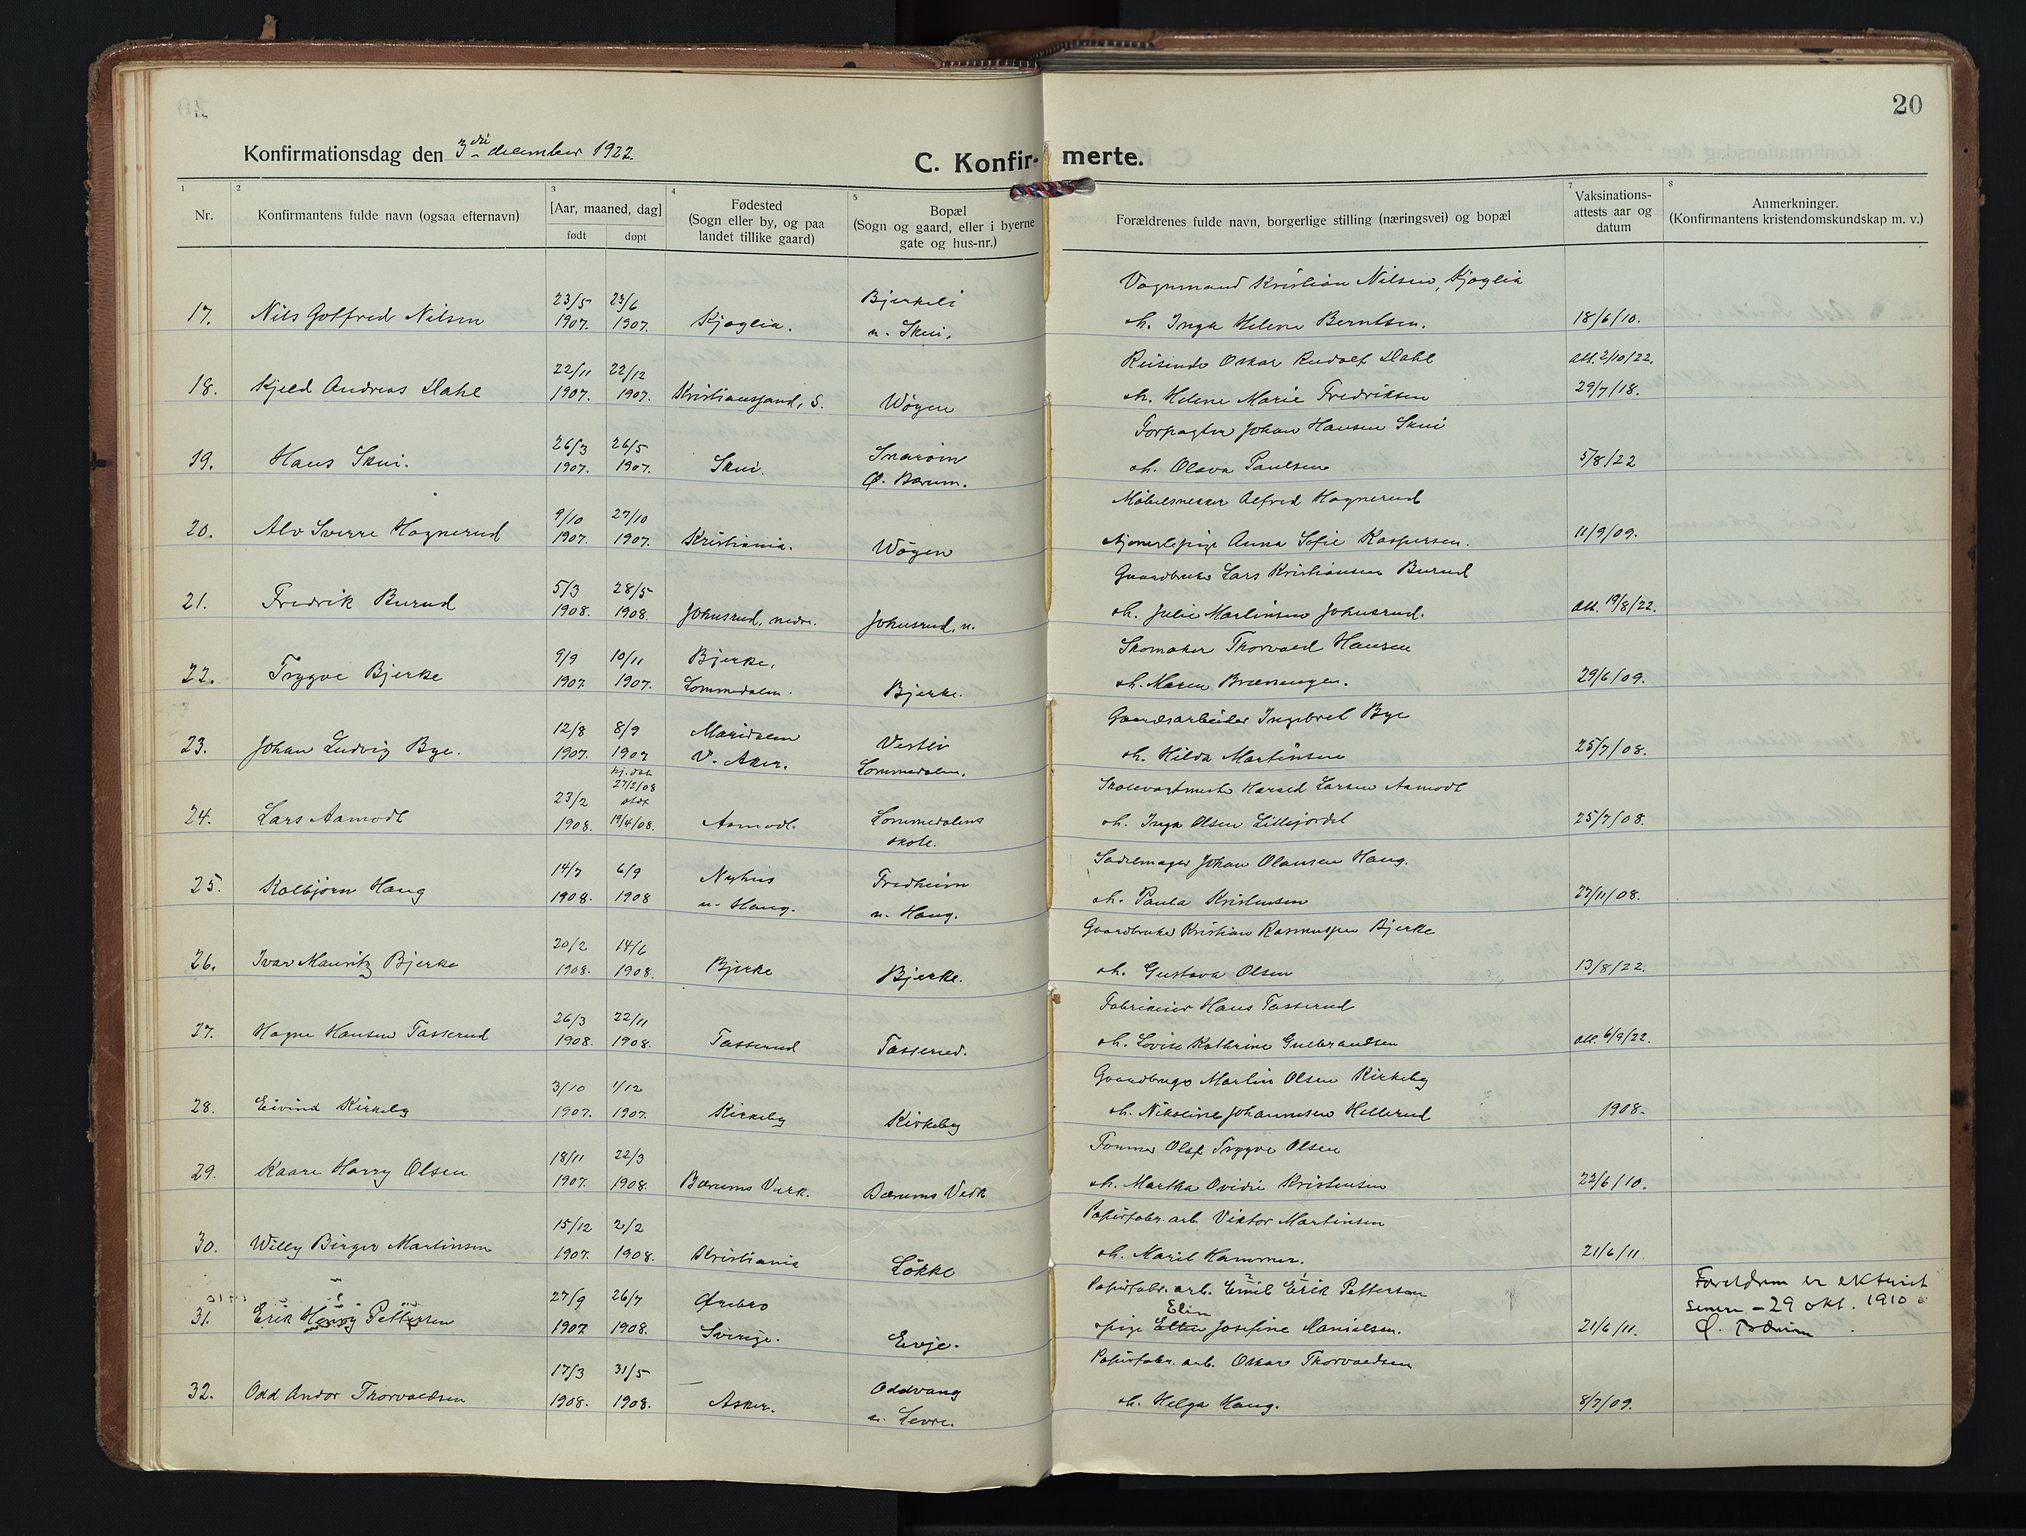 20
Konfirmationsdag den 3die december 1922.
C. Konfir- merte.
1 2 3 4 5 7 8
Nr.
Konfirmantens fulde navn (ogsaa efternavn)
[Aar, maaned, dag]
født døpt
Fødested
(Sogn eller by, og paa
landet tillike gaard)
Bopæl
(Sogn og gaard, eller i byerne
gate og hus-nr.)
Forældrenes fulde navn, borgerlige stilling (næringsvei) og bopæl
Vaksinations-
attests aar og
datum
Anmerkninger.
(Konfirmantens kristendomskundskap m. v.)
23/5 23/6 Bjerkeli Vognmand Kristian Nilsen, Kjaglia
17. Nils Gotfred Nilsen 1907. 1907. Kjaglia. n. Skui. h. Inga Helene Berntsen. 18/6/10.
22/11 22/12 Reisende Oskar Rudolf Dahl att. 2/10/22.
18. Kjeld Andreas Dahl 1907. 1907. Kristianssand, S. Wøyen h. Helene Marie Fredriksen 29/7/18.
26/3 26/5 Snarøin Forpagter Johan Hansen Skui
19. Hans Skui. 1907. 1907. Skui. Ø. Bærum. h. Olava Paulsen 5/8/22
9/10 27/10 Møbelsnekker Alfred Hagnerud
20. Alv Sverre Hagnerud 1907. 1907. Kristiania. Wøyen Anna Sofie Kaspersen. 11/9/09.
5/3 28/5 Gaardbruker Lars Kristiansen Burud
21. Fredrik Burud 1908. 1908. Johnsrud, nedre. Johnsrud, n. h. Julie Martinsen Johnsrud. att. 19/8/22.
9/9 10/11 Bjerke, Skomaker Thorvald Hansen
22. Trygve Bjerke 1907. 1907. Lommedalen. Bjerke. h. Maren Brænengen. 29/6/09.
12/8 8/9 Maridalen Vestli Gaardsarbeider Ingebret Bye
23. Johan Ludvig Bye. 1907. 1907 V. Aker. Lommedalen. h. Hilda Martinsen 25/7/08.
hj. døt
27/2/08
stdf
23/2 Skolevagtmester Harald Larsen Aamodt
24. Lars Aamodt 1908. 19/4/08. Aamodt. Lommedalens h. Inga Olsen Lillejordet 25/7/08.
skole.
14/7 6/9 Nyhus Fredheim Sadelmager Johan Olausen Haug.
25. Kolbjørn Haug 1908. 1908 n. Haug. n. Haug. h. Paula Kristensen 27/11/08.
20/2 14/6 Gaardbruker Kristian Rasmussen Bjerke
26. Ivar Mauritz Bjerke 1908. 1908. Bjerke Bjerke. h. Gustava Olsen 13/8/22.
26/3 22/11 Fabrikeier Hans Tasserud
27. Hagne Hansen Tasserud 1908. 1908. Tasserud Tasserud. h. Lovise Kathrine Gulbrandsen att. 6/9/22.
3/10 1/12 Gaardbruger Martin Olsen Kirkeby
28. Eivind Kirkeby 1907. 1907. Kirkeby Kirkeby h. Nikoline Johannesen Hellerud 1908.
18/11 22/3 Tømmer Olaf Trygve Olsen
29. Kaare Harry Olsen 1907. 1908. Bærums Verk. Bærums Verk h. Martha Ovidie Kristensen 22/6/10.
15/12 2/2 Papirfabr. arb. Viktor Martinsen
30. Willy Birger Martinsen 1907. 1908. Kristiania Løkke h. Marit Hammer. 21/6/11.
27/9 26/7 Ørebro Papirfabr. arb. Emil Erik Petterson Foreldrene er ektuiet
Elin senere - 29 okt. 1910 i
31. Erik Henry Pettersen 1907 1908. Sverige. Evje. pige Josefine Danielsen. 21/6/11. Ø. Bærum
17/3 31/5 Oddvang Papirfabr. arb. Oskar Thorvaldsen
32. Odd Andor Thorvaldsen 1908. 1908. Asker. n. Levre. h. Helga Haug. 8/7/09.